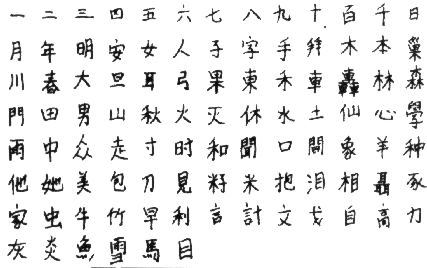 一 二 三 四 五 六 七 八 九 十 百 千 日
月 年 明 安 女 人 子 字 手 拜 木 本 巢
川 春 大 旦 耳 弓 果 東 禾 車 轟 林 森
門 田 男 山 秋 火 灭 休 水 土 仙 心 學
雨 中 众 走 寸 时 和 聞 口 間 象 羊 种
他 她 美 包 刀 見 籽 米 抱 泪 相 聶 豕
家 虫 牛 竹 早 利 言 計 文 戈 自 高 力
灰 炎 魚 雪 馬 目